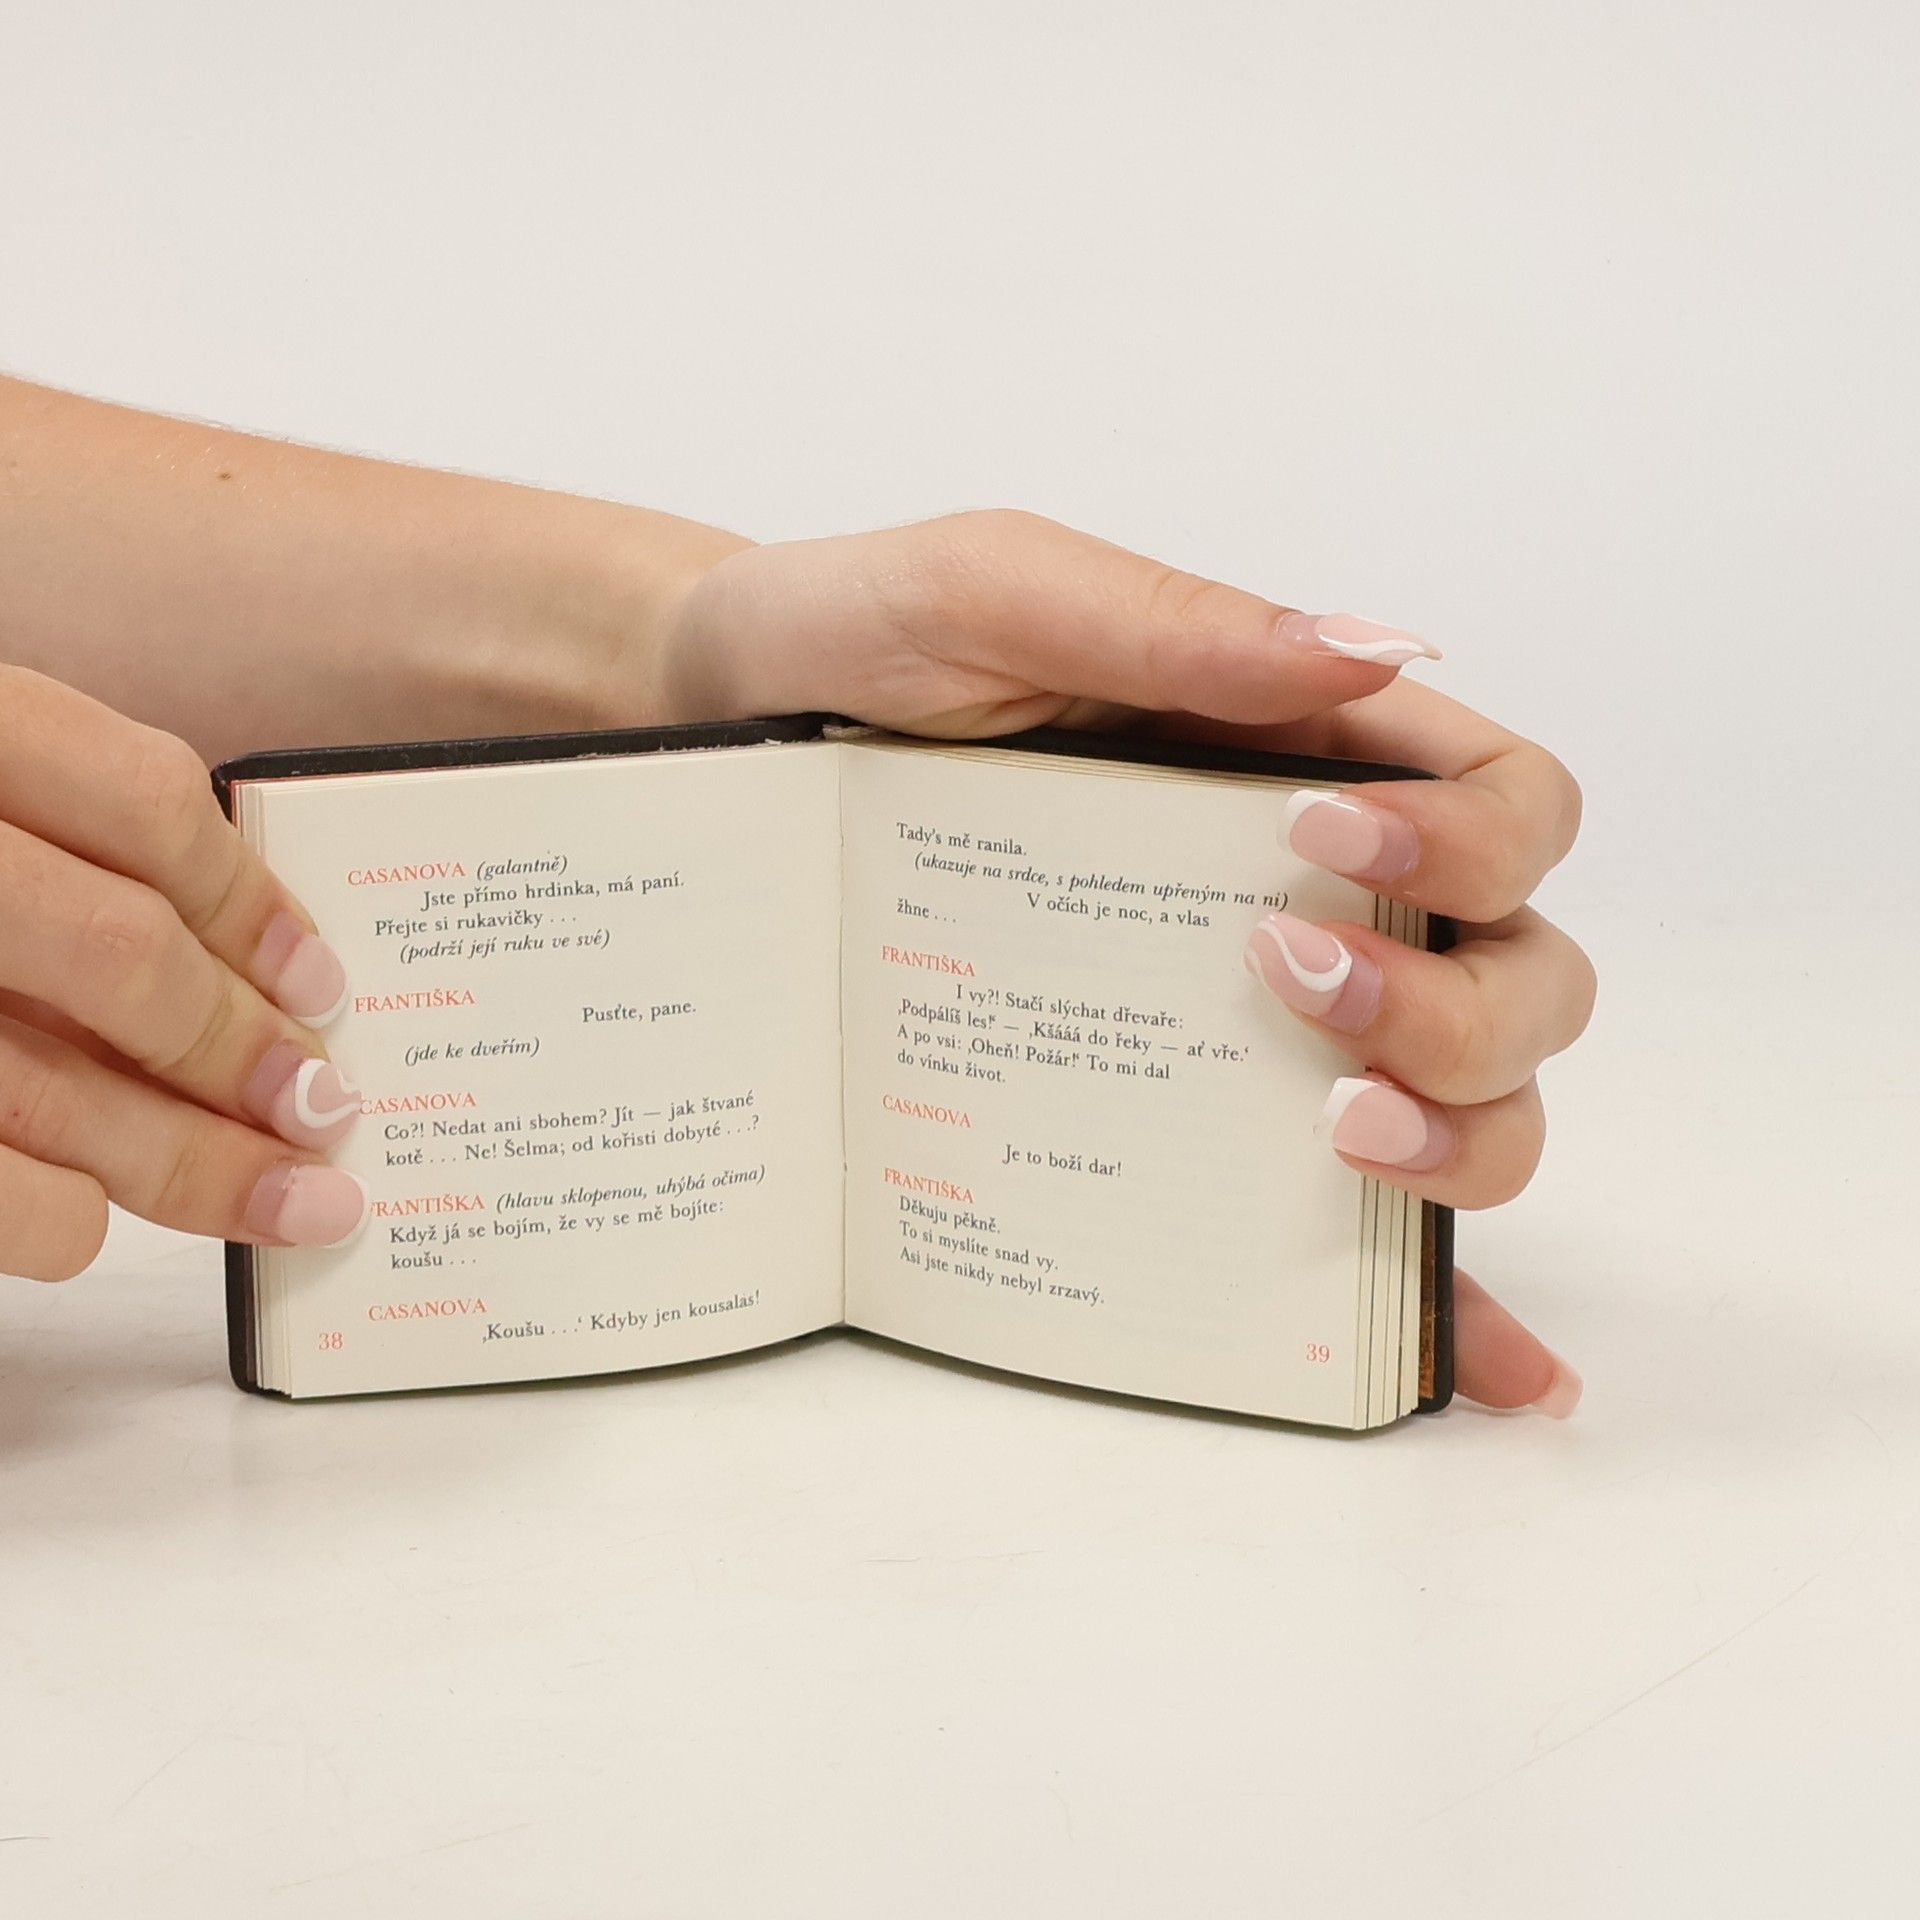 CASANOVA (galantně)
Jste přímo hrdinka, má paní.
Přejte si rukavičky . . .
(podrží její ruku ve své)
FRANTIŠKA
Pusťte, pane.
(jde ke dveřím)
CASANOVA
Co?! Nedat ani sbohem? Jít — jak štvané
kotě . . . Ne! Šelma; od kořisti dobyté . . .?
FRANTIŠKA (hlavu sklopenou, uhýbá očima)
Když já se bojím, že vy se mě bojíte:
koušu . . .
CASANOVA
‚Koušu . . .‘ Kdyby jen kousalas!
38
Tady’s mě ranila.
(ukazuje na srdce, s pohledem upřeným na ni)
V očích je noc, a vlas
žhne . . .
FRANTIŠKA
I vy?! Stačí slýchat dřevaře:
‚Podpálíš les!‘ — ‚Kšááá do řeky — ať vře.‘
A po vsi: ‚Oheň! Požár!‘ To mi dal
do vínku život.
CASANOVA
Je to boží dar!
FRANTIŠKA
Děkuju pěkně.
To si myslíte snad vy.
Asi jste nikdy nebyl zrzavý.
39